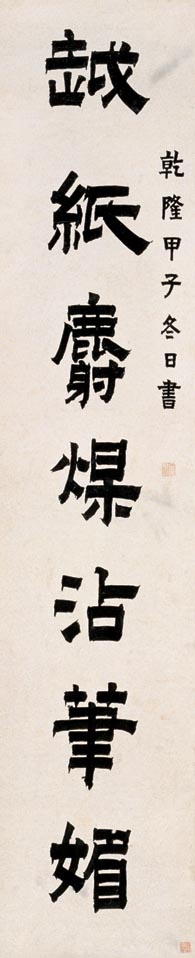 乾隆甲子冬日書
越紙麝煤沾筆媚